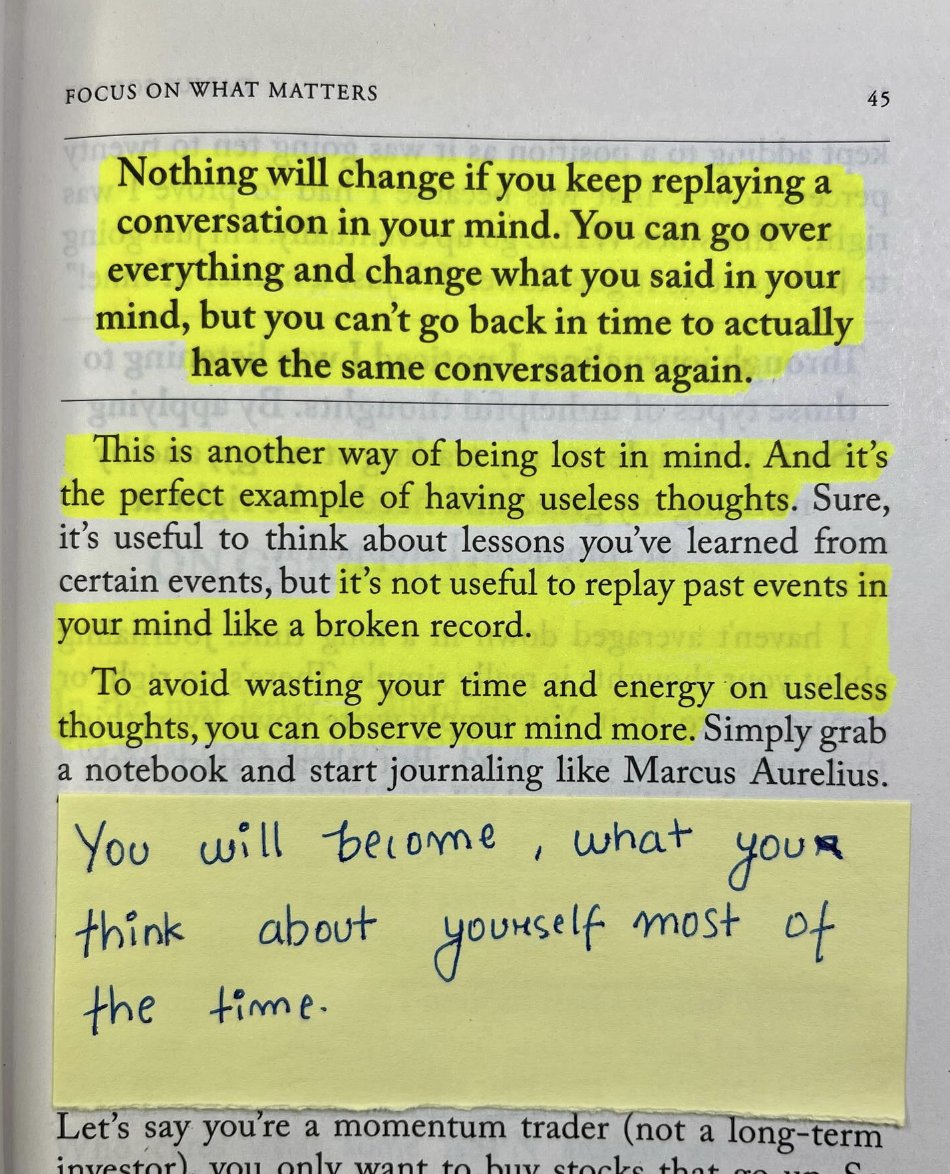 FOCUS ON WHAT MATTERS 45
Nothing will change if you keep replaying a
conversation in your mind. You can go over
everything and change what you said in your
mind, but you can't go back in time to actually
have the same conversation again.
This is another way of being lost in mind. And it's
the perfect example of having useless thoughts. Sure,
it's useful to think about lessons you've learned from
certain events, but it's not useful to replay past events in
your mind like a broken record.
To avoid wasting your time and energy on useless
thoughts, you can observe your mind more. Simply grab
a notebook and start journaling like Marcus Aurelius.
You will become, what you
think about yourself most of
the time.
Let's say you're a momentum trader (not a long-term
investor), you only want to buy stocks that go up.